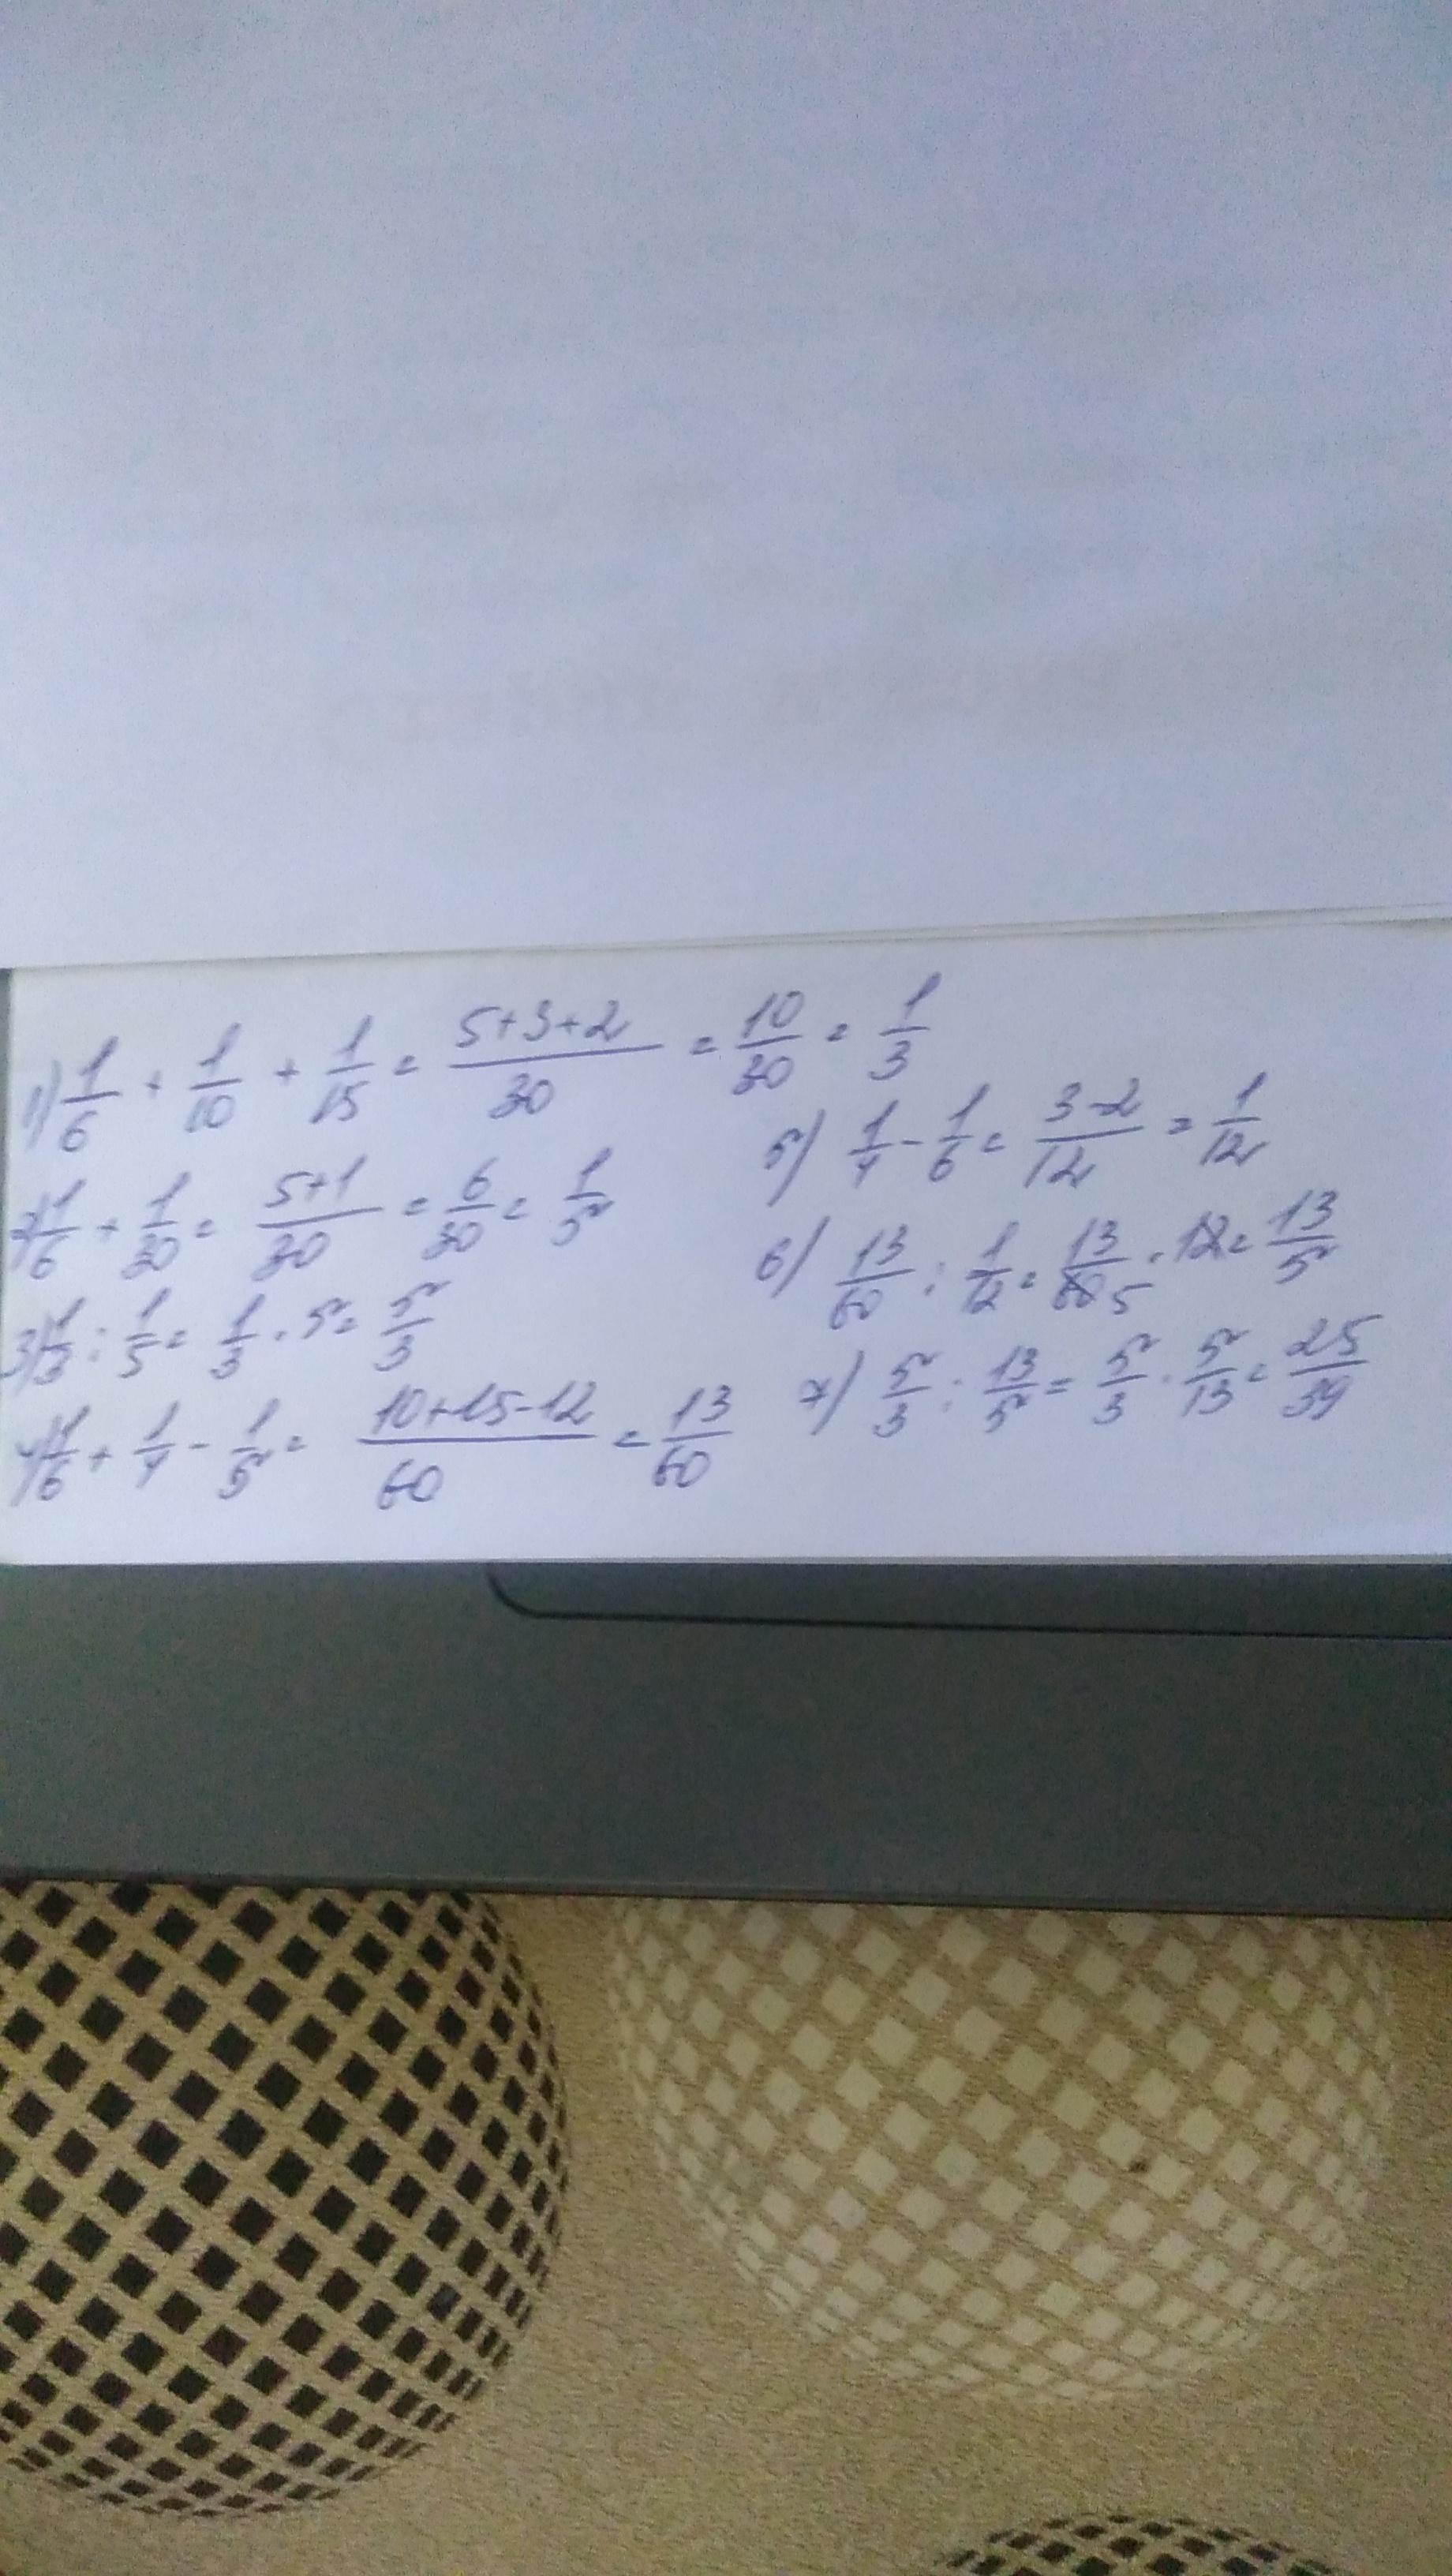 1) 1/6 + 1/10 + 1/15 = (5+3+2)/30 = 10/30 = 1/3
2) 1/6 + 1/30 = (5+1)/30 = 6/30 = 1/5
3) 1/3 : 1/5 = 1/3 · 5 = 5/3
4) 1/6 + 1/4 - 1/5 = (10+15-12)/60 = 13/60
5) 1/4 - 1/6 = (3-2)/12 = 1/12
6) 13/60 : 1/12 = 13/60 5 · 12 = 13/5
7) 5/3 : 13/5 = 5/3 · 5/13 = 25/39